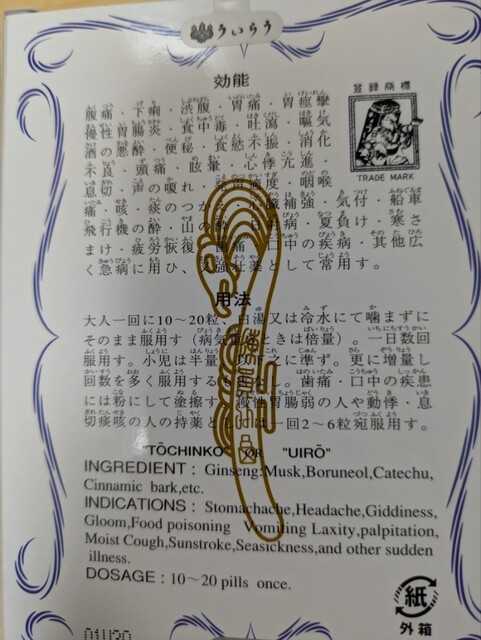 ういらう
効能
登録商標
TRADE MARK
腹痛・下痢・渋腹・胃痛・胃痙攣
慢性胃腸炎・食中毒・吐瀉・嘔気
酒の悪酔・便秘・食慾不振・消化
不良・頭痛・眩暈・心悸亢進・
息切・声の嗄れ・発声過度・咽喉
痛・咳・痰のつかえ・心臓補強・気付・船車
飛行機の酔・山の酔・日射病・夏負け・寒さ
まけ・疲労恢復・歯痛・口中の疾病・其他広
く急病に用ひ、又強壮薬として常用す。
用法
大人一回に10〜20粒、白湯又は冷水にて噛まずに
そのまま服用す（病気 ときは倍量）。一日数回
服用す。小児は半量 之に準ず。更に増量し
回数を多く服用するも 。歯痛・口中の疾患
には粉にして塗擦す。慢性胃腸弱の人や動悸・息
切痰咳の人の持薬としては一回2〜6粒宛服用す。
"TŌCHINKO" OR "UIRŌ"
INGREDIENT : Ginseng:Musk,Boruneol,Catechu,
Cinnamic bark,etc.
INDICATIONS : Stomachache,Headache,Giddiness,
Gloom,Food poisoning Vomiting Laxity,palpitation,
Moist Cough,Sunstroke,Seasickness,and other sudden
illness.
DOSAGE : 10〜20 pills once.
紙
外箱